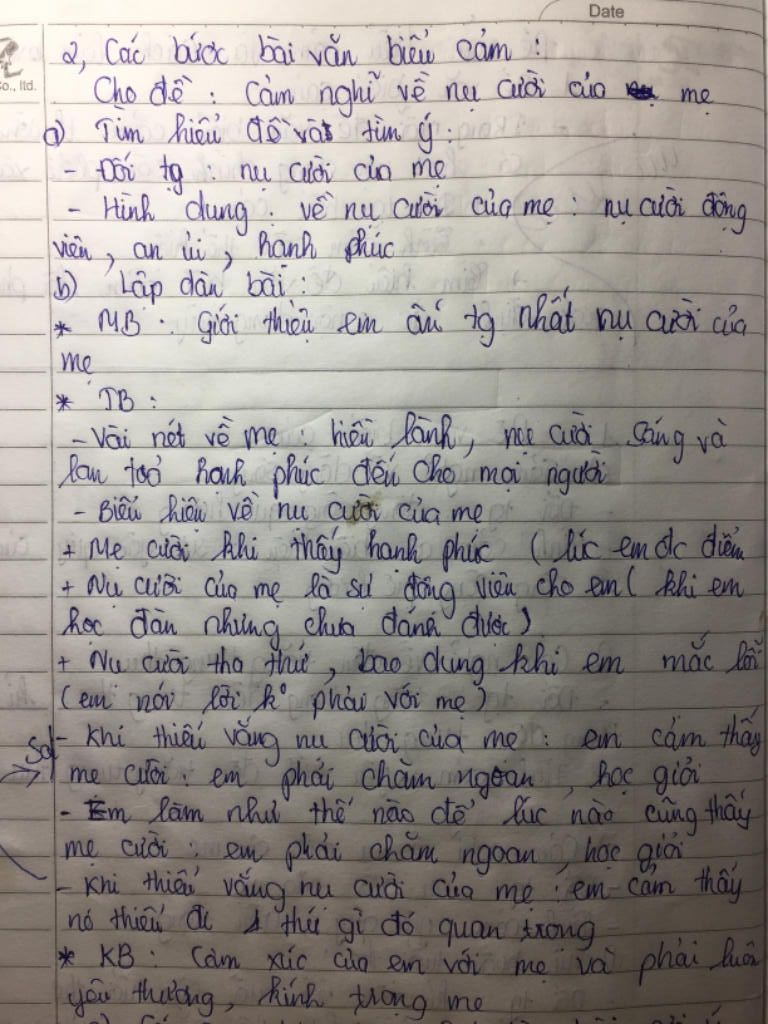 Date
Co., ltd.
2, Các bước bài văn biểu cảm :
Cho đề : Cảm nghĩ về nụ cười của mẹ
a) Tìm hiểu đề và tìm ý :
- Đối tg : nụ cười của mẹ
- Hình dung . về nụ cười của mẹ : nụ cười động
viên, an ủi, hạnh phúc
b) Lập dàn bài :
* MB . Giới thiệu em ấn tg nhất nụ cười của
mẹ
* TB :
- Vài nét về mẹ : hiền lành, nụ cười sáng và
lan toả hạnh phúc đến cho mọi người
- Biểu hiện về nụ cười của mẹ
+ Mẹ cười khi thấy hạnh phúc ( lúc em đc điểm
+ Nụ cười của mẹ là sự động viên cho em ( khi em
học đàn nhưng chưa đánh được )
+ Nụ cười tha thứ, bao dung khi em mắc lỗi
( em nói lời ko phải với mẹ )
- Khi thiếu vắng nụ cười của mẹ : em cảm thấy
mẹ cười : em phải chăm ngoan, học giỏi
- Em làm như thế nào để lúc nào cũng thấy
mẹ cười : em phải chăm ngoan, học giỏi
- Khi thiếu vắng nụ cười của mẹ : em cảm thấy
nó thiếu đi 1 thứ gì đó quan trọng
* KB : Cảm xúc của em với mẹ và phải luôn
yêu thương, kính trọng mẹ